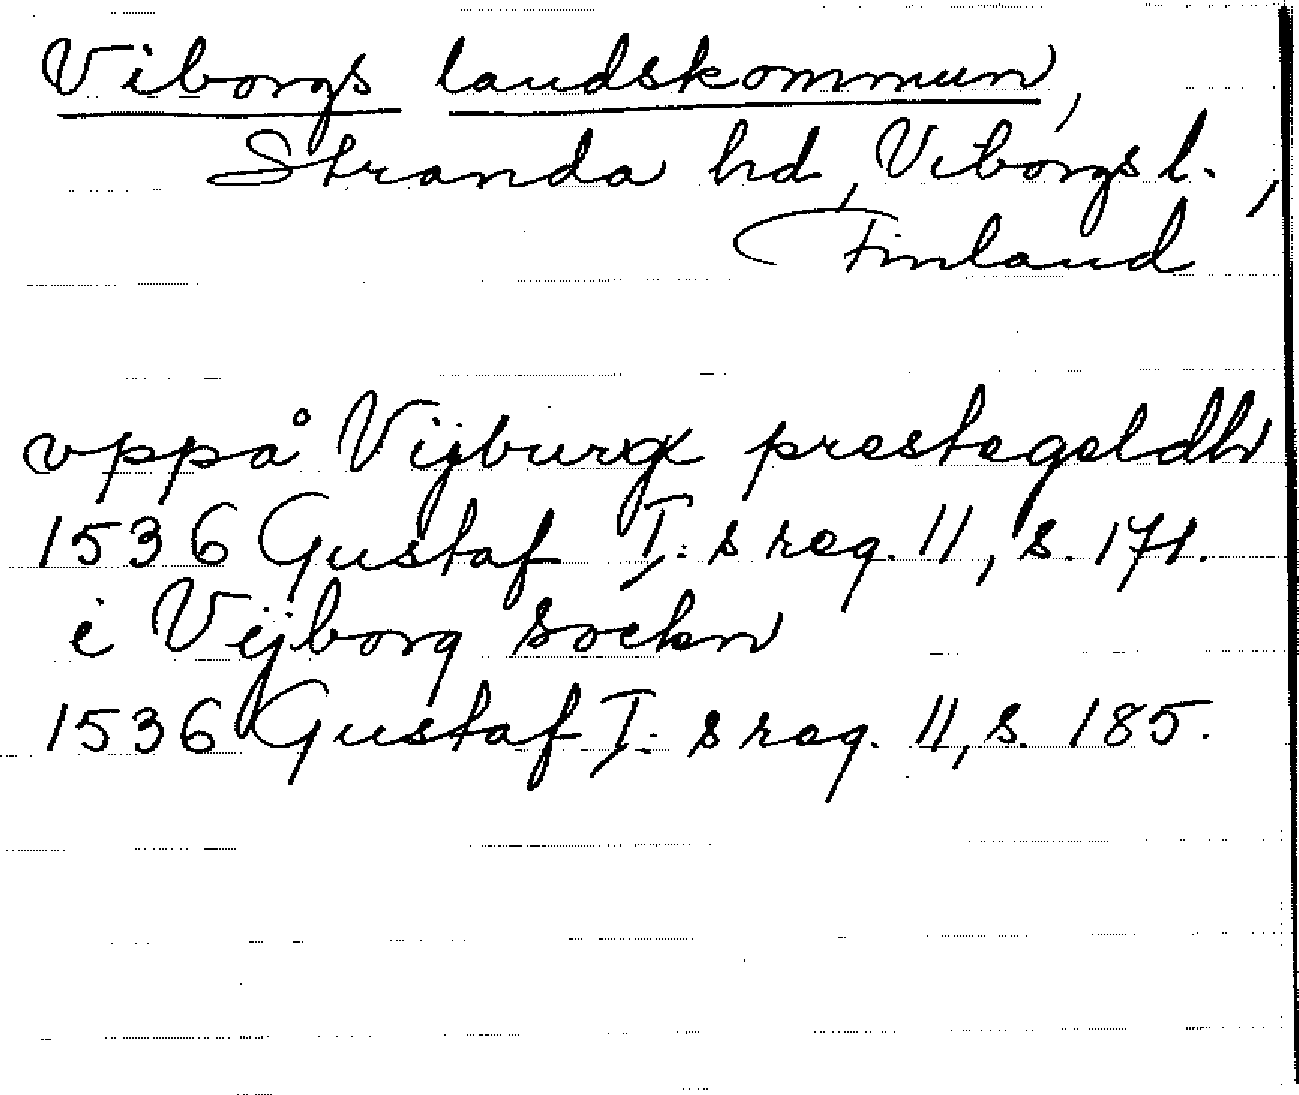 Viborgs landskommun,
Stranda hd, Viborgs l.,
Finland
vppå Vijburgx prestegeldh
1536 Gustaf I:s reg. 11, s. 171.
i Vijborg sockn
1536 Gustaf I:s reg. 11, s. 185.